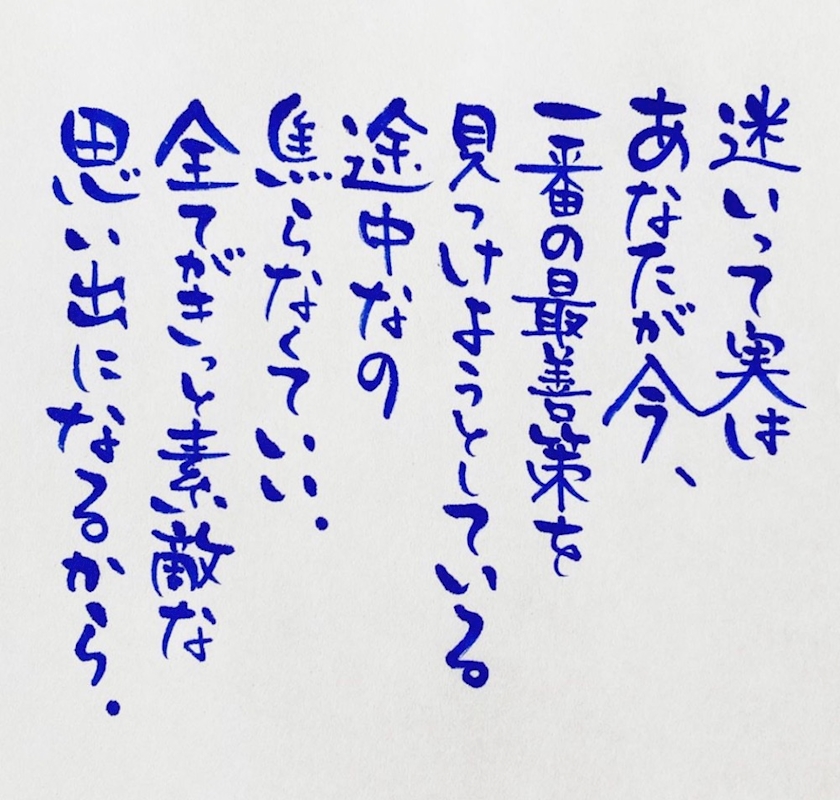 迷いって実は
あなたが今、
一番の最善策を
見つけようとしている
途中なの
焦らなくていい.
全てがきっと素敵な
思い出になるから.